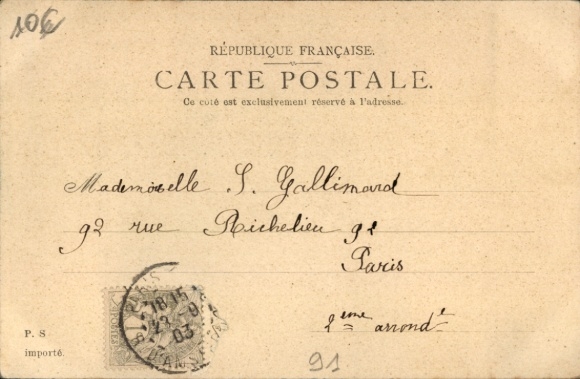 10€
RÉPUBLIQUE FRANÇAISE.
CARTE POSTALE.
Ce coté est exclusivement réservé à l'adresse.
Mademoiselle S. Gallimard
92 rue Richelieu 92
Paris
2ème arrondt
18 15
22 9
03
P. S
importé.
91